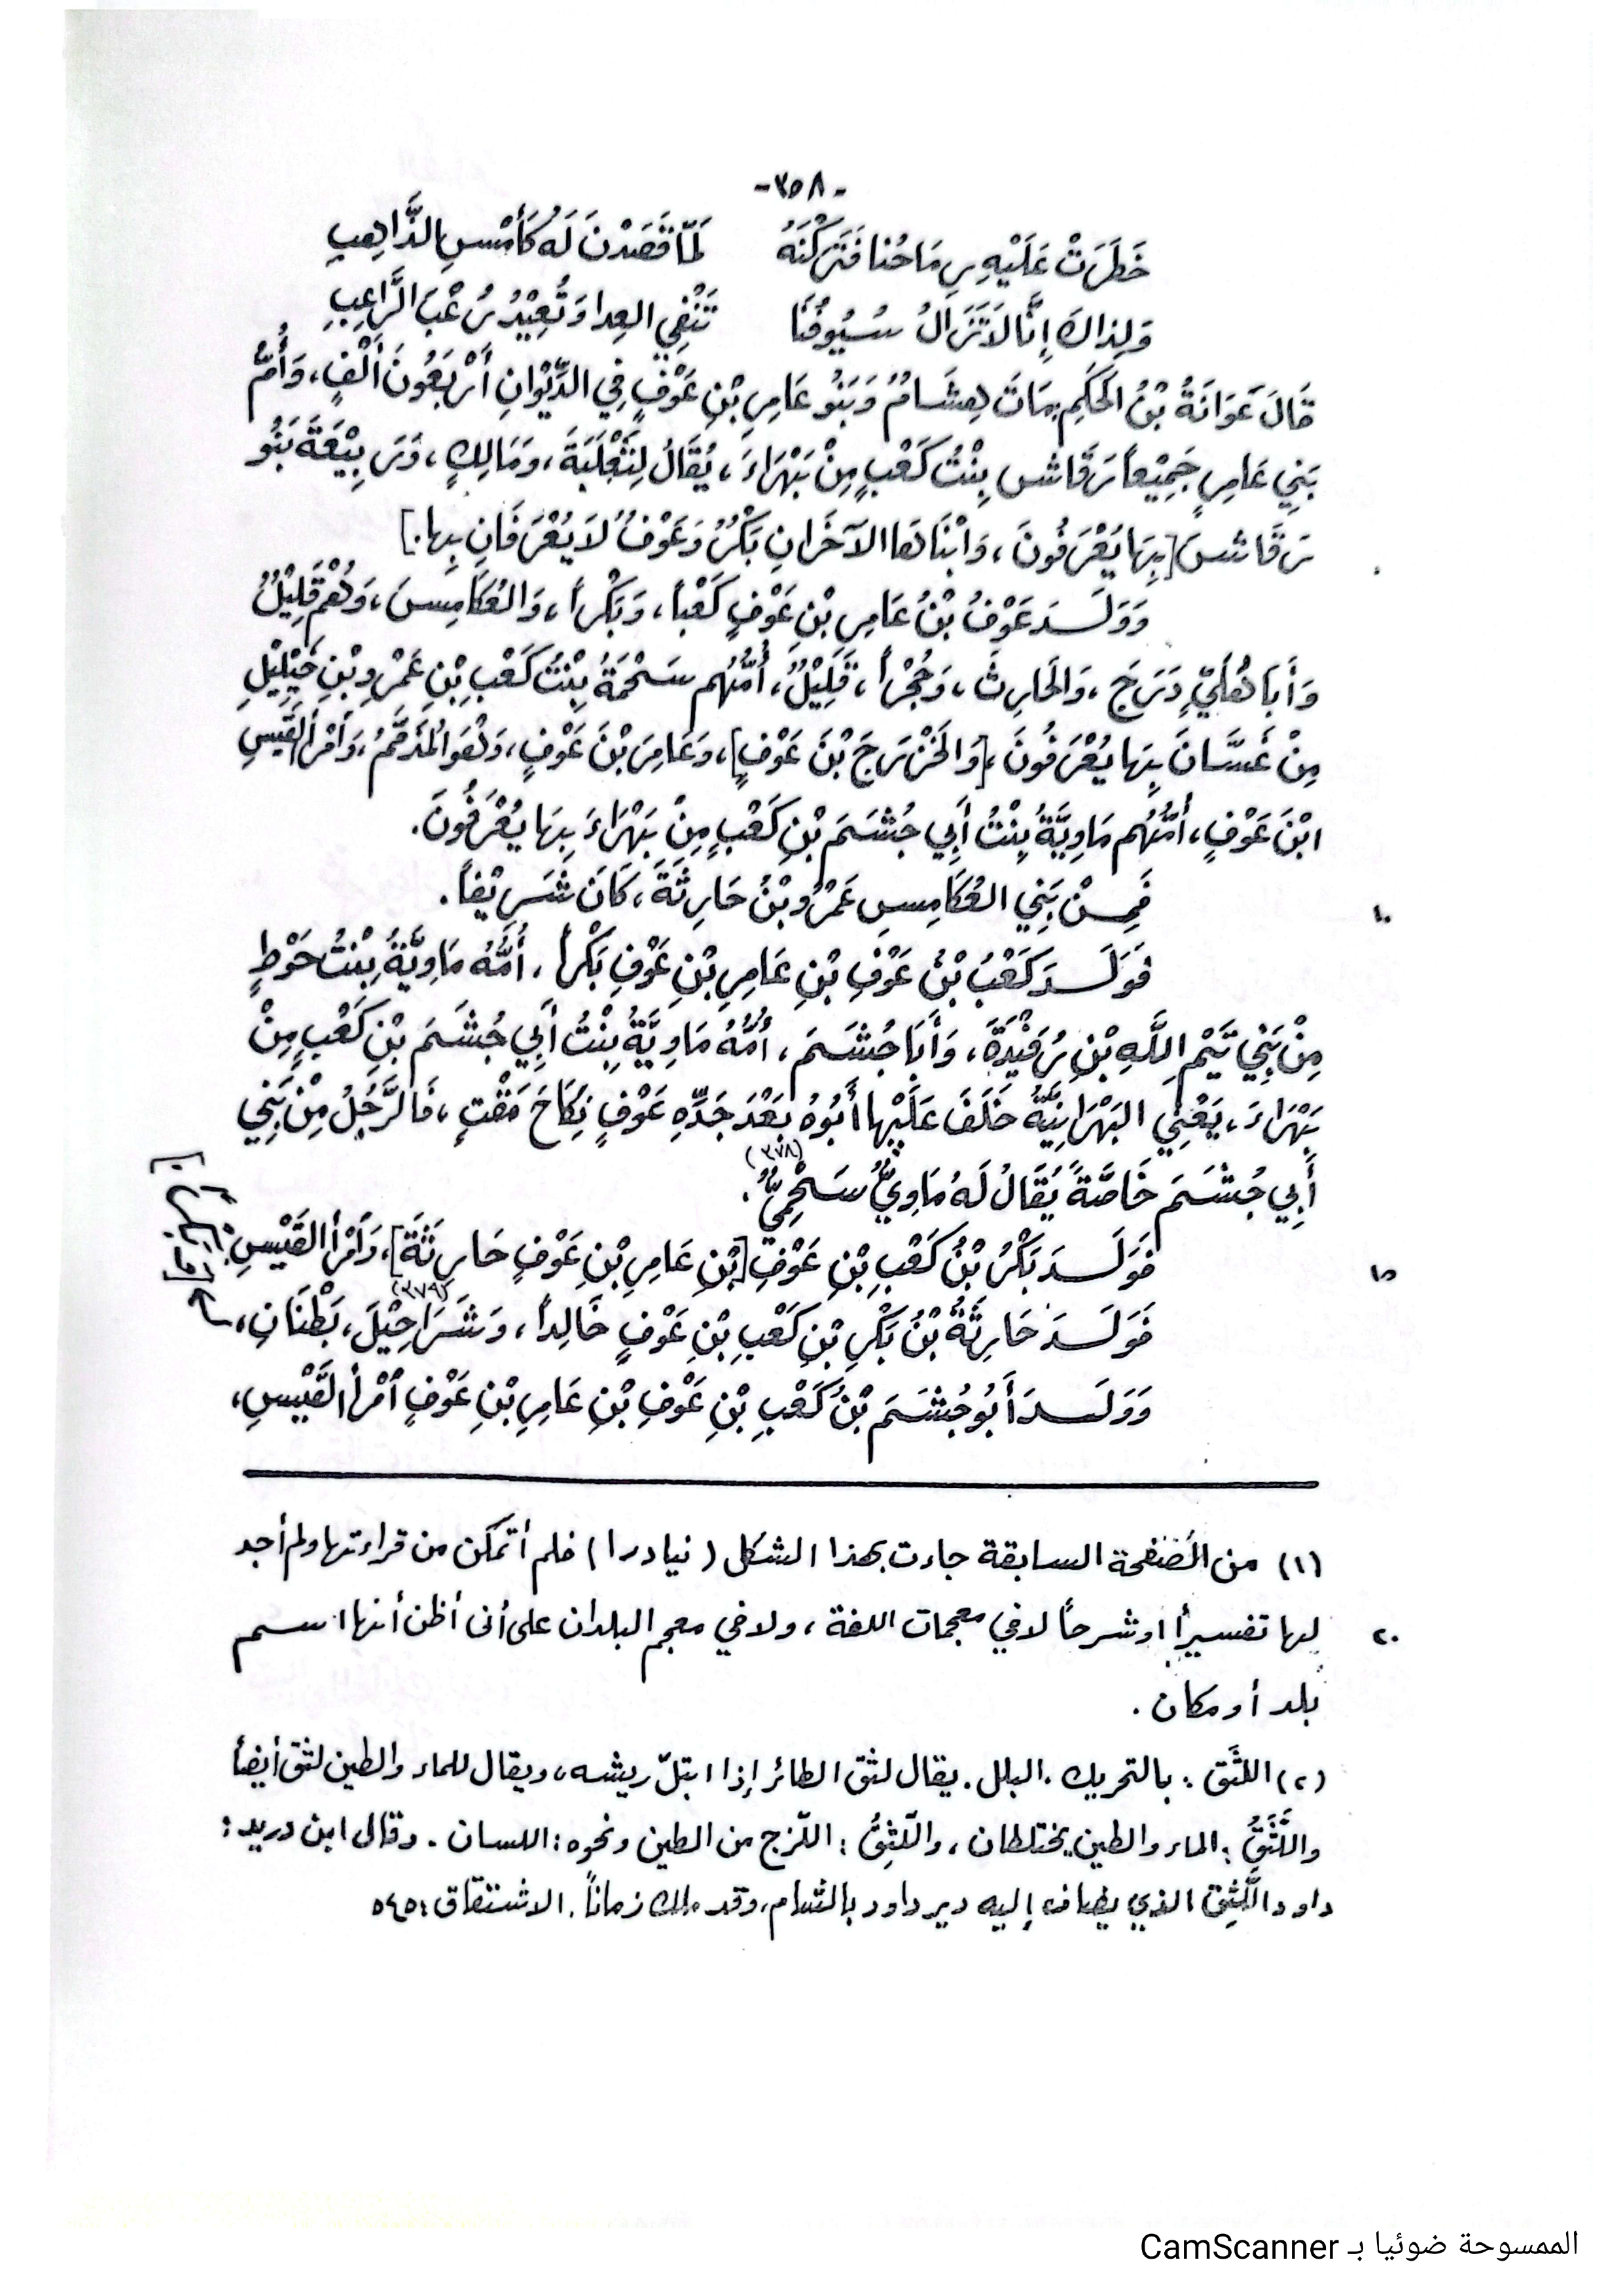 -٣٥٨-
خَطَرَتْ عَلَيْهِ رِمَاحُنا فَتَرَكْنَهُ لَمّا قَصَدْنَ لَهُ كَأَمْسِ الذَّاهِبِ
وَلِذاكَ إِنَّا لاَ تَزَالُ سُيُوفُنَا تَنْفِي العِدا وَتُعِيْدُ رُعْبَ الرَّاعِبِ
قَالَ عَوَانَةُ بْنُ الحَكَمِ مَاتَ هِشَامُ وَبَنُو عَامِرِ بْنِ عَوْفٍ فِي الدِّيْوَانِ أَرْبَعُونَ أَلْفٍ، وَأُمُّ
بَنِي عَامِرٍ جَمِيْعاً رَقَاشِ بِنْتُ كَعْبٍ مِنْ بَهْرَاءَ، يُقَالُ لِثَعْلَبَةَ، وَمَالِكٍ، وَرَبِيْعَةَ بَنُو
رَقَاشَ [بِهَا يُعْرَفُونَ، وَابْنَاهَا الآخَرانِ بَكْرٌ وَعَوْفٌ لاَ يُعْرَفَانِ بِها.]
وَوَلَدَ عَوْفُ بْنُ عَامِرِ بْنِ عَوْفٍ كَعْباً، وَبَكْراً، وَالعُكَامِسَ، وَهُمْ قَلِيْلٌ
وَأَبَا هُلَيٍّ دَرَجَ، وَالحَارِثَ، وَحُجْراً، قَلِيْلٌ، أُمُّهُم سَحْمَةُ بِنْتُ كَعْبِ بْنِ عَمْرِو بْنِ خَلِيْلِ
مِنْ غَسَّانَ بِهَا يُعْرَفُونَ، [وَالخَزْرَجَ بْنَ عَوْفٍ]، وَعَامِرَ بْنَ عَوْفٍ، وَهُوَ المُذَمَّمُ، وَأمْرأَ القَيْسِ
ابْنَ عَوْفٍ، أُمُّهُم مَاوِيَّةُ بِنْتُ أَبِي جُشَمَ بْنِ كَعْبٍ مِنْ بَهْرَاءَ بِهَا يُعْرَفُونَ.
فَمِنْ بَنِي العُكَامِسِ عَمْرُو بْنُ حَارِثَةَ، كَانَ شَرِيْفاً.
١٠
فَوَلَدَ كَعْبُ بْنُ عَوْفِ بْنِ عَامِرِ بْنِ عَوْفٍ بَكْراً، أُمُّهُ مَاوِيَّةُ بِنْتُ حَوْطٍ
مِنْ بَنِي تَيْمِ اللَّهِ بْنِ رُفَيْدَةَ، وَأَبَا جُشَمَ، أُمُّهُ مَاوِيَّةُ بِنْتُ أَبِي جُشَمَ بْنِ كَعْبٍ مِنْ
بَهْرَاءَ، يَعْنِي البَهْرَانِيَّةَ خَلَفَ عَلَيْهِا أَبُوهُ بَعْدَ جَدِّهِ عَوْفٍ نِكَاحَ مَقْتٍ، فَالرَّجُلُ مِنْ بَنِي
أَبِي جُشَمَ خَاصَّةً يُقَالُ لَهُ مَاوِيٌّ سَحْمِيٌّ.(٣٧٨)
فَوَلَدَ بَكْرُ بْنُ كَعْبِ بْنِ عَوْفِ [بْنِ عَامِرِ بْنِ عَوْفٍ حَارِثَةَ]، وَأمْرأَ القَيْسِ.
١٥
فَوَلَدَ حَارِثَةُ بْنُ بَكْرِ بْنِ كَعْبِ بْنِ عَوْفٍ خَالِداً، وَشَرَاحِيْلَ(٣٧٩)، بَطْنَانِ،
وَوَلَدَ أَبُو جُشَمَ بْنُ كَعْبِ بْنِ عَوْفِ بْنِ عَامِرِ بْنِ عَوْفٍ اُمْرأَ القَيْسِ،
(١) من الصَفحة السابقة جاءت بهذا الشكل (نيادرا) فلم أتمكن من قراءتها ولم أجد
لها تفسيراً اوشرحاً لا في معجمات اللغة، ولا في معجم البلدان على أنى أظن أنها اسم
٢٠
بلد أو مكان.
(٢) اللثَق: بالتحريك. البلل. يقال لثق الطائر إذا ابتلّ ريشه، ويقال للماء والطين لثق أيضاً
واللَّثَقُ: الماء والطين يختلطان، واللَّثِقُ: اللّزج من الطين ونحوه: اللسان. وقال ابن دريد:
داود اللَّثِق الذي يضاف إليه دير داود بالشام، وقد ملك زماناً. الاشتقاق: ٥٤٥
الممسوحة ضوئيا بـ CamScanner